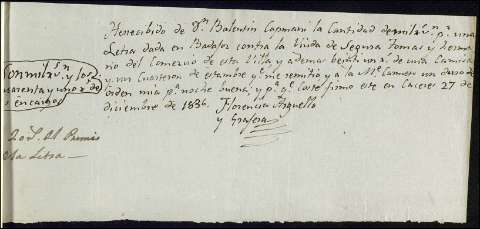 He recibido de Dn. Balentin Capmani la Cantidad de mil rs. vn. pr. una
Letra dada en Badajoz contra la Viuda de Segura Tomas y herma
no del Comercio de esta Villa y ademas beinte un rs. de una Camisa
y un Cuarteron de estambre qe. me remitió y a la Ma. Carmen un duro de
orden mia pa. noche buena, y pa. qe. Coste firmo este en Caceres 27 de
diciembre de 1836.
Florencia Arguello
y Grafera
Son mil rs. vn. y los
cuarenta y un rs. de
encargos
20 rs. del Premio
de la Letra